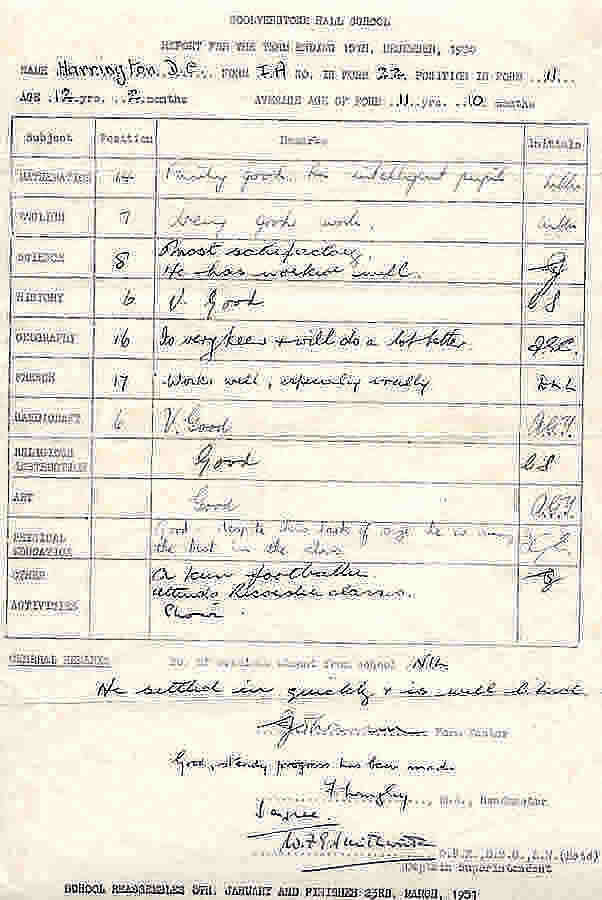 WOOLVERSTONE HALL SCHOOL
REPORT FOR THE TERM ENDING 19TH, DECEMBER, 1950
NAME Harrington. D.C. FORM I.A NO. IN FORM 22 POSITION IN FORM ..11...
AGE .12.yrs. ..2.months AVERAGE AGE OF FORM ..11..yrs. ..10. months
Subject Position Remarks Initials
MATHEMATICS 14 Fairly good. An intelligent pupil
ENGLISH 7 doing good work.
SCIENCE 8 Most satisfactory.
He has worked well.
HISTORY 6 V. Good
GEOGRAPHY 16 Is very keen & will do a lot better.
FRENCH 17 Works well, especially orally
HANDICRAFT 6 V. Good
RELIGIOUS INSTRUCTION Good
ART Good
PHYSICAL EDUCATION Good - despite his lack of size he is among
the best in the class
OTHER ACTIVITIES A keen footballer.
Attends Recorder classes.
Choir.
GENERAL REMARKS No. of sessions absent from school NIL
He settled in quickly & is well
Form Master
Good, steady progress has been made
M.A., Headmaster
I agree.
Captain Superintendent
SCHOOL REASSEMBLES 8TH. JANUARY AND FINISHES 23RD, MARCH, 1951